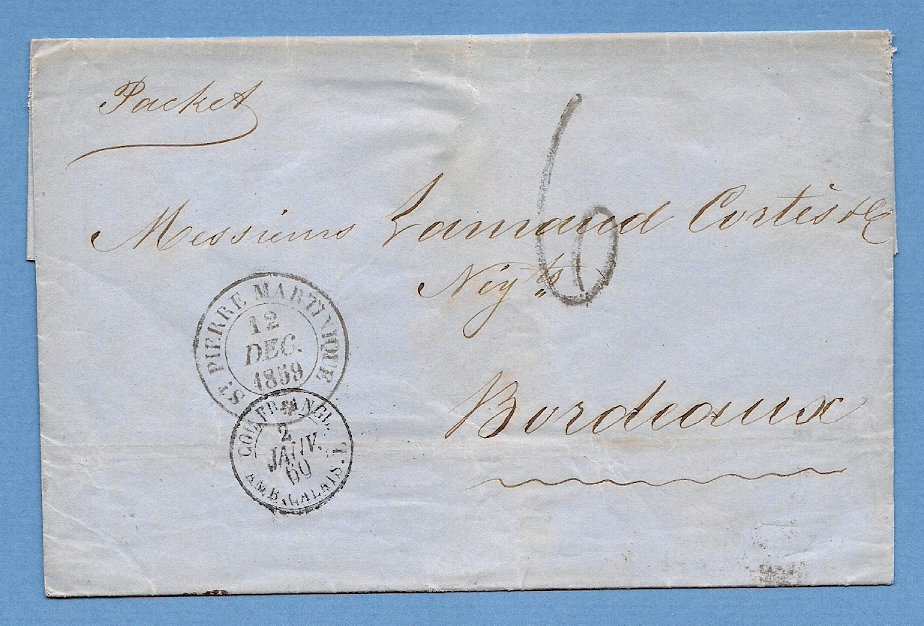 Packet
6
Messieurs Lamaud Cortès & Cie
Nég.ts
Bordeaux
ST PIERRE MARTINIQUE
12
DEC.
1859
COL.FR.ANGL.
2
JANV.
60
AMB.CALAIS.